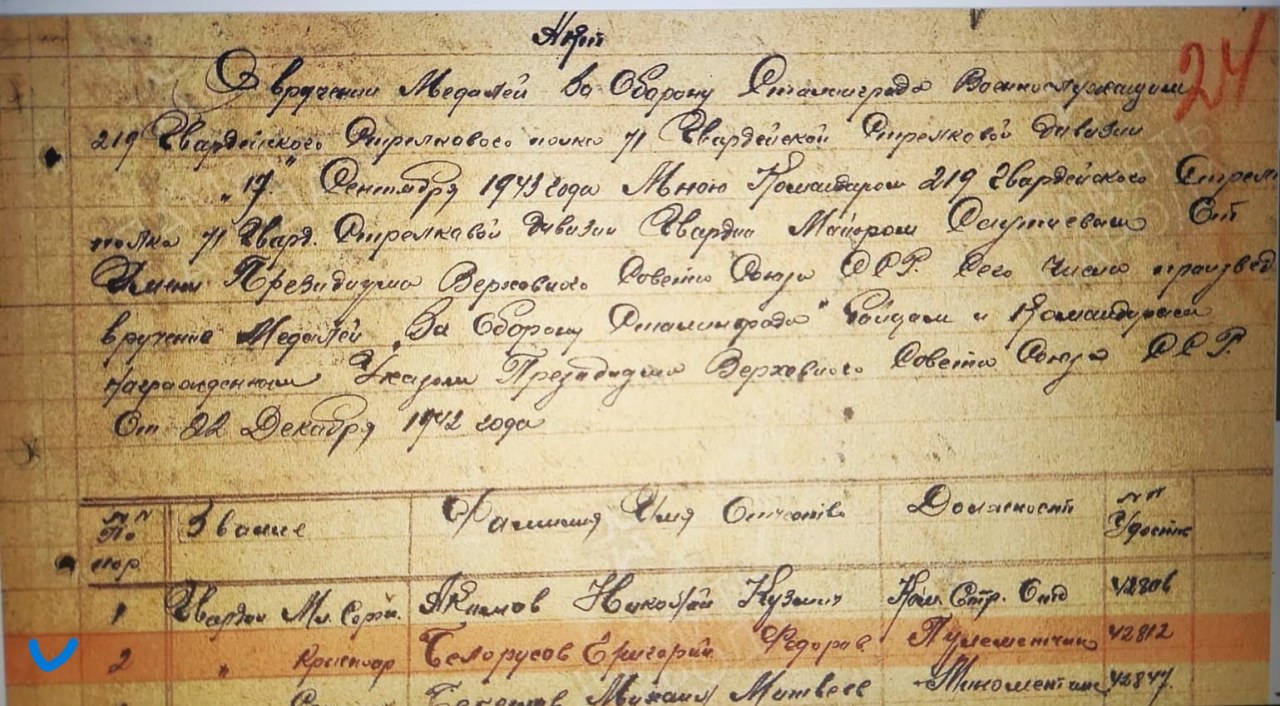 Акт
О вручении Медалей За Оборону Сталинграда Военнослужащим
24
219 Гвардейского Стрелкового полка 71 Гвардейской Стрелковой дивизии
„17" Сентября 1943 года Мною Командиром 219 Гвардейского Стрел
полка 71 Гвард. Стрелковой дивизии Гвардии Майором От
Имени Президиума Верховного Совета Союза ССР. Сего числа произвед
вручение Медалей „За Оборону Сталинграда" бойцам и Командирам
награжденным Указом Президиума Верховного Совета Союза ССР.
От 22 Декабря 1942 года
№№ По пор. Звание Фамилия Имя Отчество Должность №№ Удостов
1 Гвардии Мл. Серж. Акимов Николай Кузьмич Ком. Стр. Отд 42806
2 " Красноар Белорусов Григорий Федоров Пулеметчик 42812
Михаил Матвеев Минометчик 42847